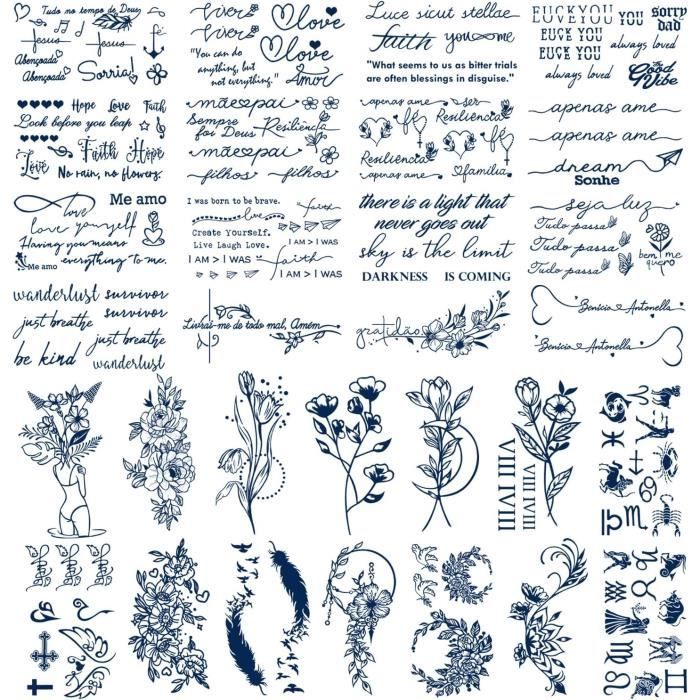 Tudo no tempo de Deus
Jesus
Jesus
Abençoada
Abençoada
Sorria!
Viver
Viver
"You can do
anything, but
not everything."
love
love
Amor
Luce sicut stellae
faith you∞me
"What seems to us as bitter trials
are often blessings in disguise."
EUCK YOU YOU
EUCK YOU
EUCK YOU
sorry
dad
always loved
always loved
Good
Vibe
Hope Love Faith
Look before you leap
Love
Faith Hope
No rain, no flowers.
mãe∞pai
Sempre
foi Deus
Resiliência
mãe∞pai
filhos filhos
apenas ame
ser
Resiliência
fé
fé
Resiliência
apenas ame
família
apenas ame
apenas ame
dream
Sonhe
Me amo
love yourself
Having you means
everything to me.
Me amo
I was born to be brave.
love
Create Yourself.
Live Laugh Love.
I AM > I WAS
faith
I AM > I WAS
faith
I AM > I WAS
there is a light that
never goes out
sky is the limit
DARKNESS IS COMING
seja luz
Tudo passa
Tudo passa
Tudo passa
bem me
quero
wanderlust survivor
survivor
just breathe
just breathe
be kind
wanderlust
Livrai-me de todo mal, Amém
gratidão
Benício Antonella
Benício Antonella
VIII IVIII
VIII IVIII